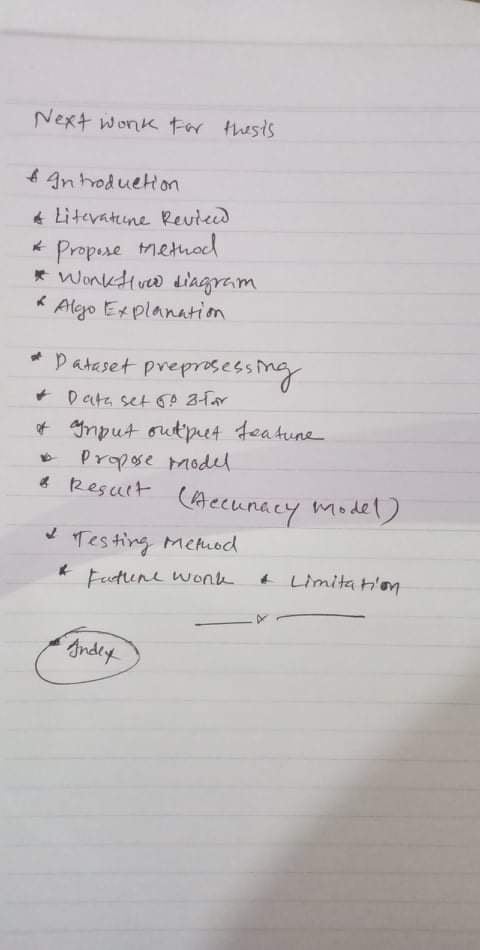 Next work for thesis
* Introduction
* Literature Review
* Propose Method
* Workflow diagram
* Algo Explanation
* Dataset preprosessing
* Data set
* Input output feature
* Propose Model
* Result (Accuracy Model)
* Testing Method
* Future Work * Limitation
* Index